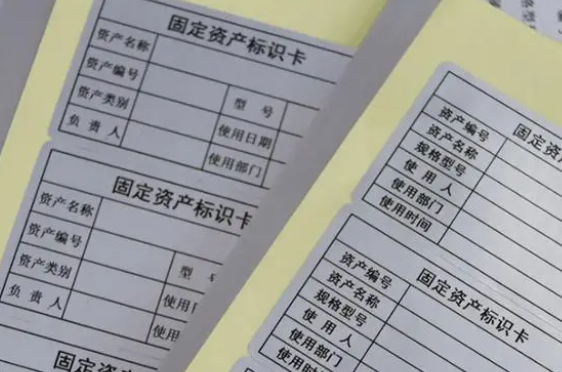 固定资产标识卡
资产名称
资产编号
资产类别 型 号
负 责 人 使用日期
使用部门
固定资产标识卡
资产名称
资产编号
资产类别 型
负 责 人 使用日
使用
固定资产标
固定资产标
资产编号
资产名称
规格型号
使 用 人
使用部门
使用时间
固定资产标识卡
资产编号
资产名称
规格型号
使 用 人
使用部门
使用时间